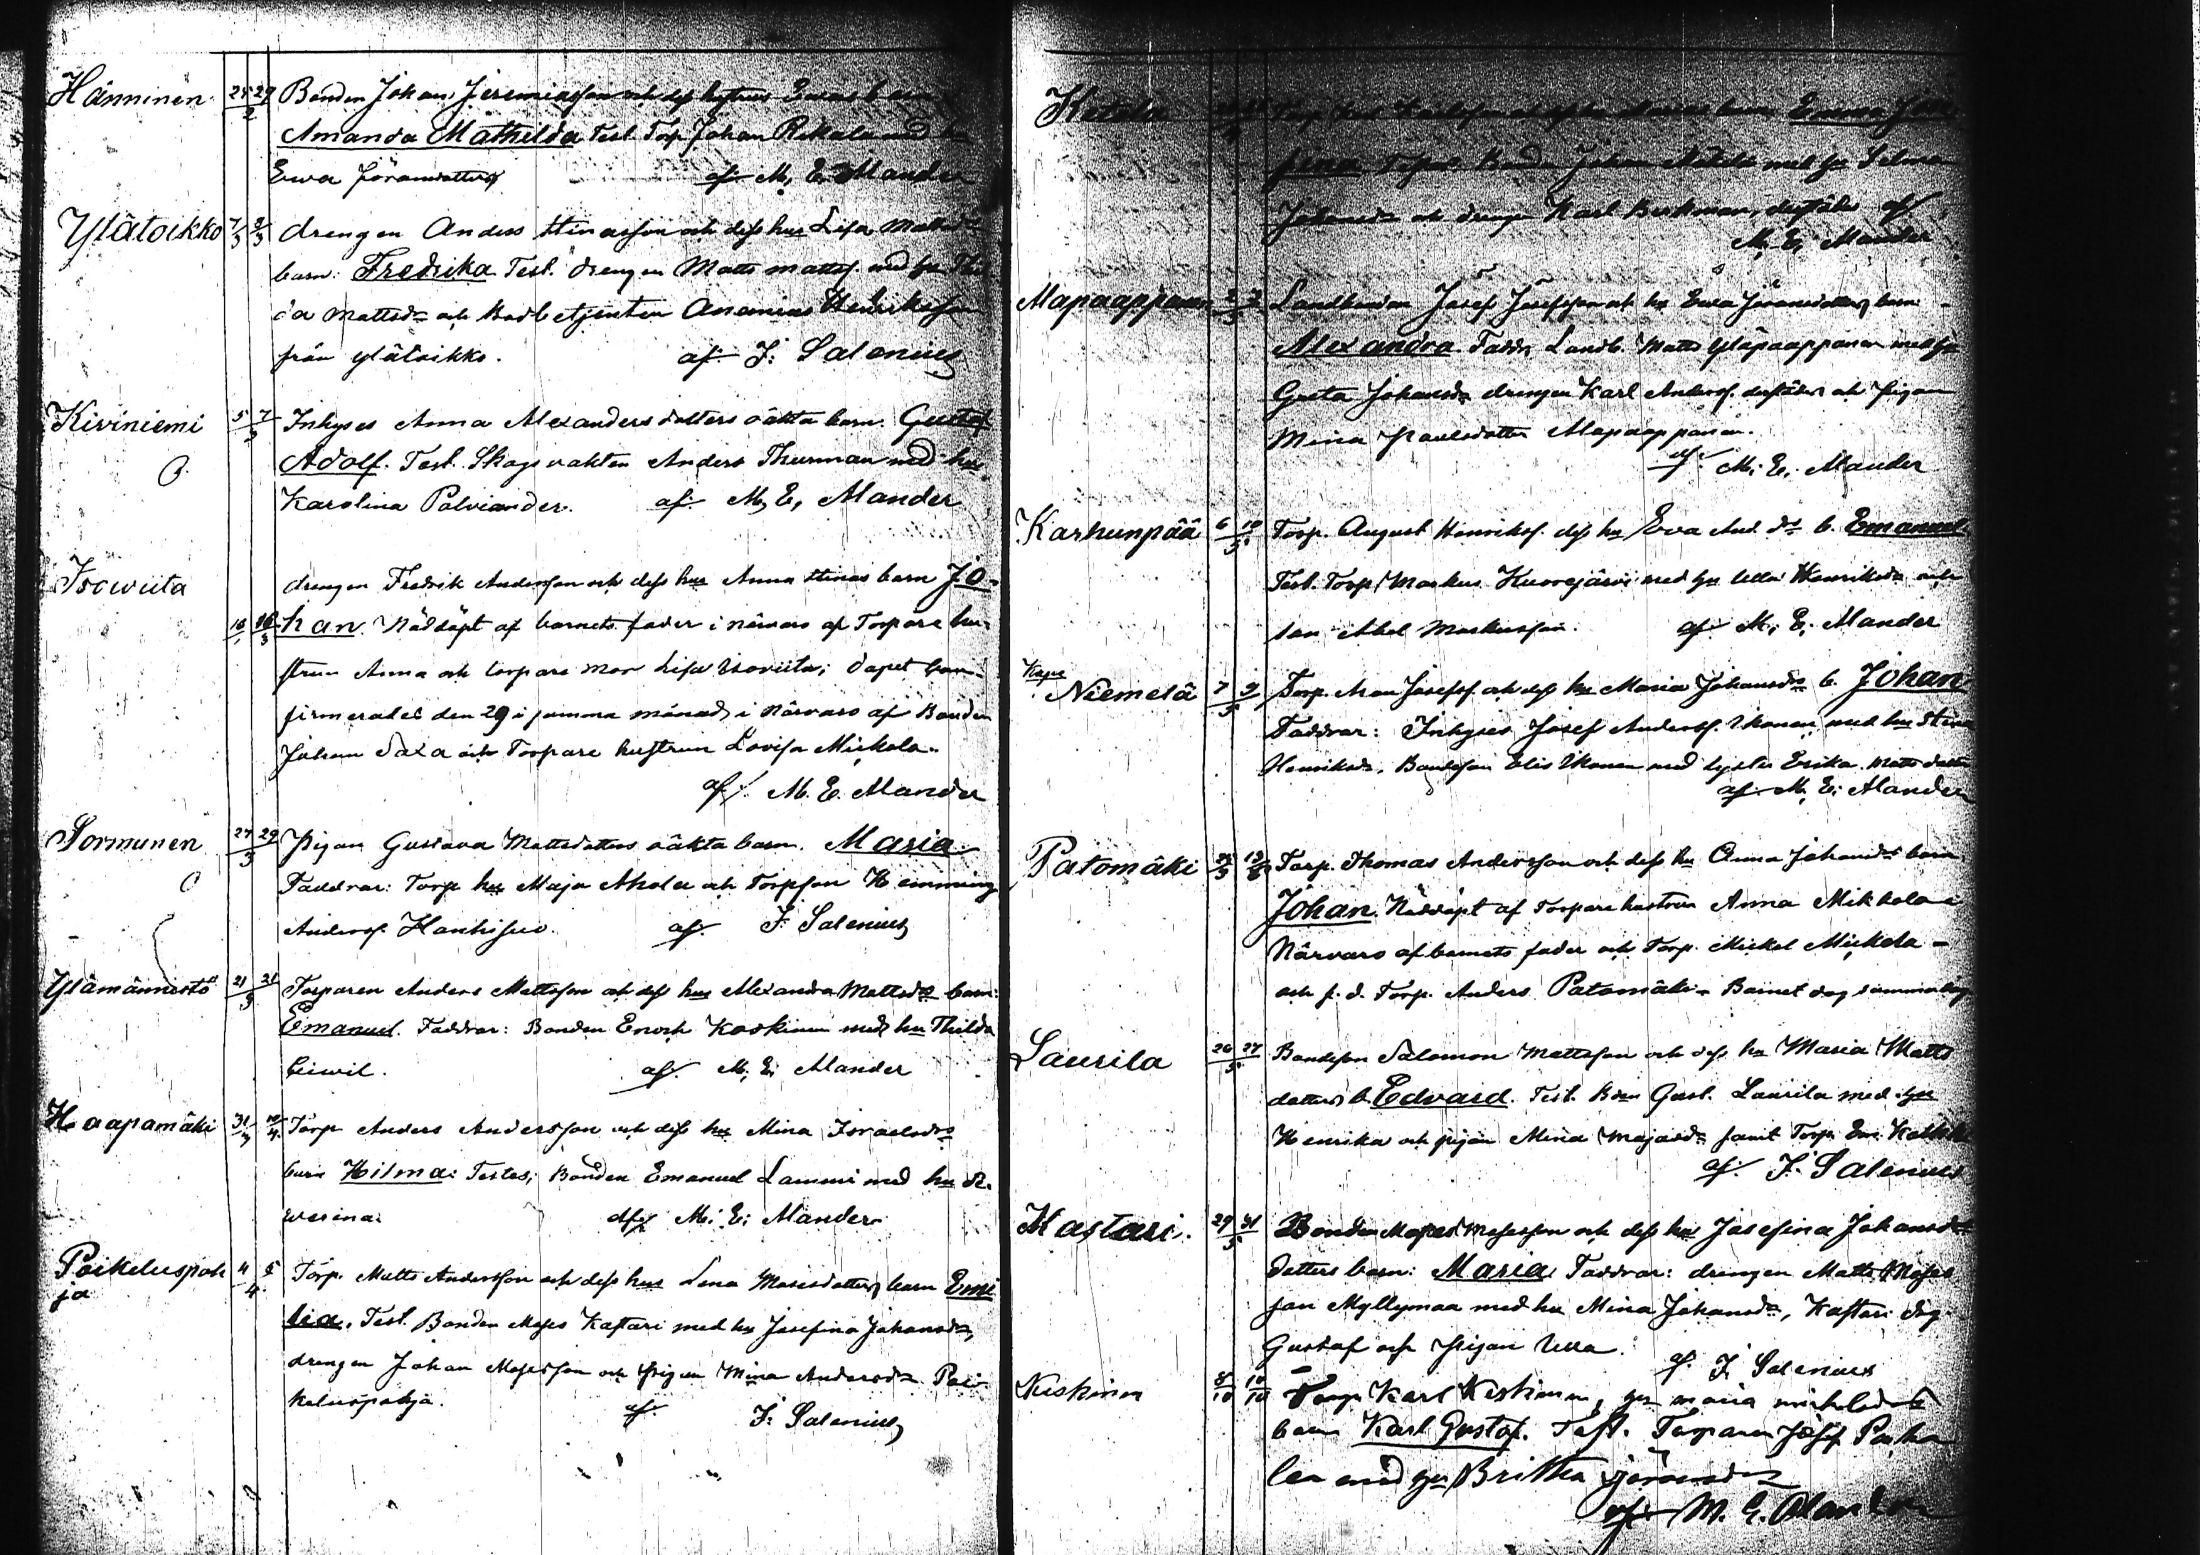 Hänninen 25/2 27 Bonden Johan Jeremiasson och dess hustrus Evas barn
Amanda Mathilda Test. Torp. Johan Rikala med hu
Ewa Göransdotter af M. E. Mander
Ylätoikko 1/3 2/3 drengen Anders Stinasson och dess hus Lisa Mattsd
barn: Fredrika Test. drengen Matts Mattss. med hu
da Mattsdr och Bodbetjenten Ananias Henriksson
från Ylätoikko. af J. Salonius
Kiviniemi 5/3 7 Inhyses Anna Alexandersdotters oäkta barn. Gustaf
O. Adolf. Test. Skogsvakten Anders Thurman med hu
Karolina Palviander. af M. E. Mander
Isowiita drengen Fredrik Andersson och dess hus Anna Stinas barn Jo-
16 16/3 han. Nöddöpt af barnets fader i närvaro af Torpare hu-
strun Anna och torpare mor Lisa Isoviita; dopet kon-
firmerades den 29 i samma månad i närvaro af Bonden
Johan Saxa och Torpare hustrun Lovisa Mickola.
af M. E. Mander
Sormunen 27/3 29 Pigan Gustava Mattsdotters oäkta barn. Maria
O Faddrar: Torp hu Maja Ahola och Torpson Hemming
Anderss. Hanhisuo. af J. Salenius
Ylämännistö 21/3 25 Torparen Anders Mattsson och dess hus Alexandra Mattsdr barn:
Emanuel. Faddrar: Bonden Enoch Koskinen med hu Thilda
af M. E. Mander
Haapamäki 31/3 /4 Torp Anders Andersson och dess hu Mina Israelsdrs
barn Hilma: Testes; Bonden Emanuel Lammi med hu Se
werina: af M. E. Mander
Poikeluspoh 4/4 5 Torp. Matts Andersson och dess hus Lena Mattsdotters barn Emi
ja lia. Test. Bonden Moses Kastari med hu Josefina Johansdr,
drengen Johan Mosesson och Pigan Mina Andersdr Poi-
keluspohja. af J. Salenius
Ketola Torp. barn Emma Jose
fina. Bonden Johan med hu Selma
Johansdr och drengen Karl Berkman, dersäde af
M. E. Mander
Mapaappanen 2/5 3 Landbonden Josef Josefsson och hu Ewa Göransdotters barn
Alexandra. Faddr. Landb. Matts Yläpaappanen med hu
Greta Johansdr drengen Karl Anderss. dersädes och Pigan
Mina Paulsdotter Mapaappanen.
af M. E. Mander
Karhunpää 6/5 10 Torp. August Henrikss. dess hu Eva And. dr b. Emanuel
Test. Torp. Markus Kuorejärvi med hu Ulla Henriksdr och
son Abel Markusson. af M. E. Mander
Niemelä 7/5 9 Torp. Josefss. och dess hu Maria Johansdr b. Johan
Faddrar: Inhyses Josef Anderss. Ikonen med hu Stina
Henriksdr, Bondeson Elis Ikonen med syster Erika Mattsdotter
af M. E. Mander
Patomäki Torp. Thomas Andersson och dess hu Anna Johansdr barn
Johan. Nöddöpt af Torpare hustrun Anna Mikkola i
Närvaro af barnets fader och Torp. Mickel Mickola
och f. d. Torp. Anders Patomäki. Barnet dog samma dag
Laurila 26/5 27 Bondeson Salomon Mattsson och dess hu Maria Matts
dotters b. Edvard. Test. Bon Gust. Laurila med hu
Henrika och pigan Mina Majasdr samt Torp. Em.
af J. Salenius
Kastari. 29/5 31 Bonden Moses Mosesson och dess hu Josefina Johansdr
dotters barn: Maria. Faddrar: drengen Matts Moses
son Myllymaa med hu Mina Johansdr, Kastari drg
Gustaf och Pigan Ulla. af J. Salenius
Keskinen 8/10 10/10 Torp Karl Keskinen, hu Maria Mickelsdr
barn Karl Gustaf. Test. Torparen Josef
len med hu Britha Göransdr
af M. E. Mander